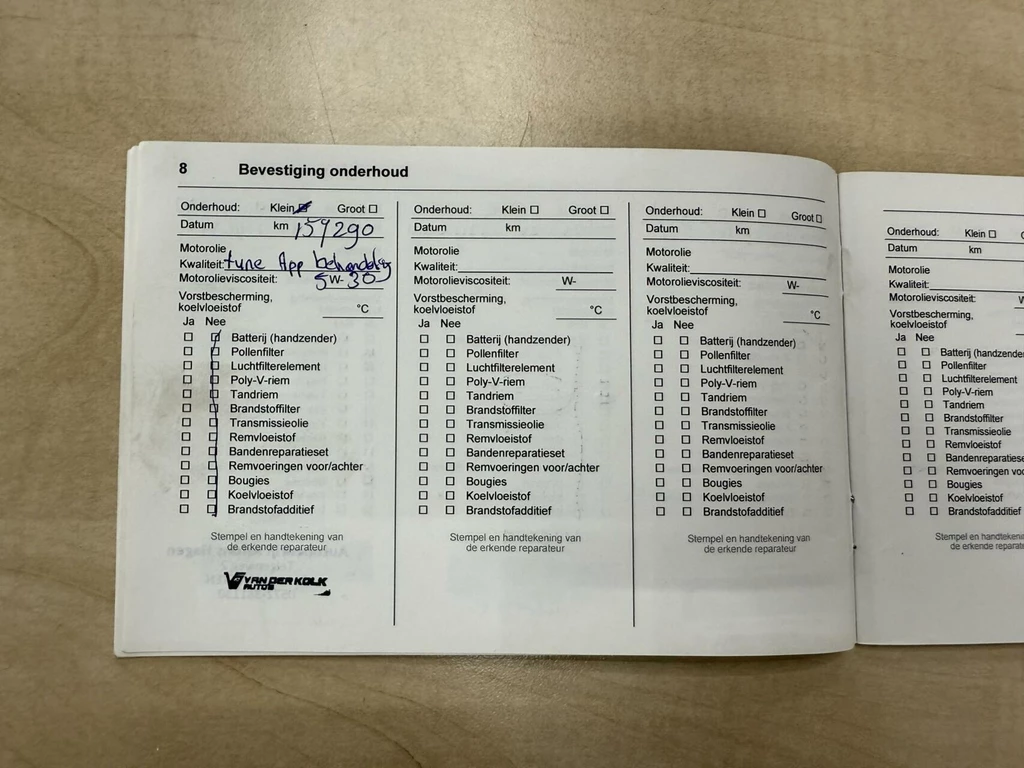 8 Bevestiging onderhoud
Onderhoud: Klein Groot
Datum km 157290
Motorolie
Kwaliteit: tune App behandeling
Motorolieviscositeit: 5W-30
Vorstbescherming,
koelvloeistof °C
Ja Nee
Batterij (handzender)
Pollenfilter
Luchtfilterelement
Poly-V-riem
Tandriem
Brandstoffilter
Transmissieolie
Remvloeistof
Bandenreparatieset
Remvoeringen voor/achter
Bougies
Koelvloeistof
Brandstofadditief
Stempel en handtekening van
de erkende reparateur
VAN DER KOLK
AUTO'S
Onderhoud: Klein Groot
Datum km
Motorolie
Kwaliteit:
Motorolieviscositeit: W-
Vorstbescherming,
koelvloeistof °C
Ja Nee
Batterij (handzender)
Pollenfilter
Luchtfilterelement
Poly-V-riem
Tandriem
Brandstoffilter
Transmissieolie
Remvloeistof
Bandenreparatieset
Remvoeringen voor/achter
Bougies
Koelvloeistof
Brandstofadditief
Stempel en handtekening van
de erkende reparateur
Onderhoud: Klein Groot
Datum km
Motorolie
Kwaliteit:
Motorolieviscositeit: W-
Vorstbescherming,
koelvloeistof °C
Ja Nee
Batterij (handzender)
Pollenfilter
Luchtfilterelement
Poly-V-riem
Tandriem
Brandstoffilter
Transmissieolie
Remvloeistof
Bandenreparatieset
Remvoeringen voor/achter
Bougies
Koelvloeistof
Brandstofadditief
Stempel en handtekening van
de erkende reparateur
Onderhoud: Klein
Datum km
Motorolie
Kwaliteit:
Motorolieviscositeit:
Vorstbescherming,
koelvloeistof
Ja Nee
Batterij (handzender
Pollenfilter
Luchtfilterelement
Poly-V-riem
Tandriem
Brandstoffilter
Transmissieolie
Remvloeistof
Bandenreparatiese
Remvoeringen vo
Bougies
Koelvloeistof
Brandstofadditief
Stempel en handtekenin
de erkende repara